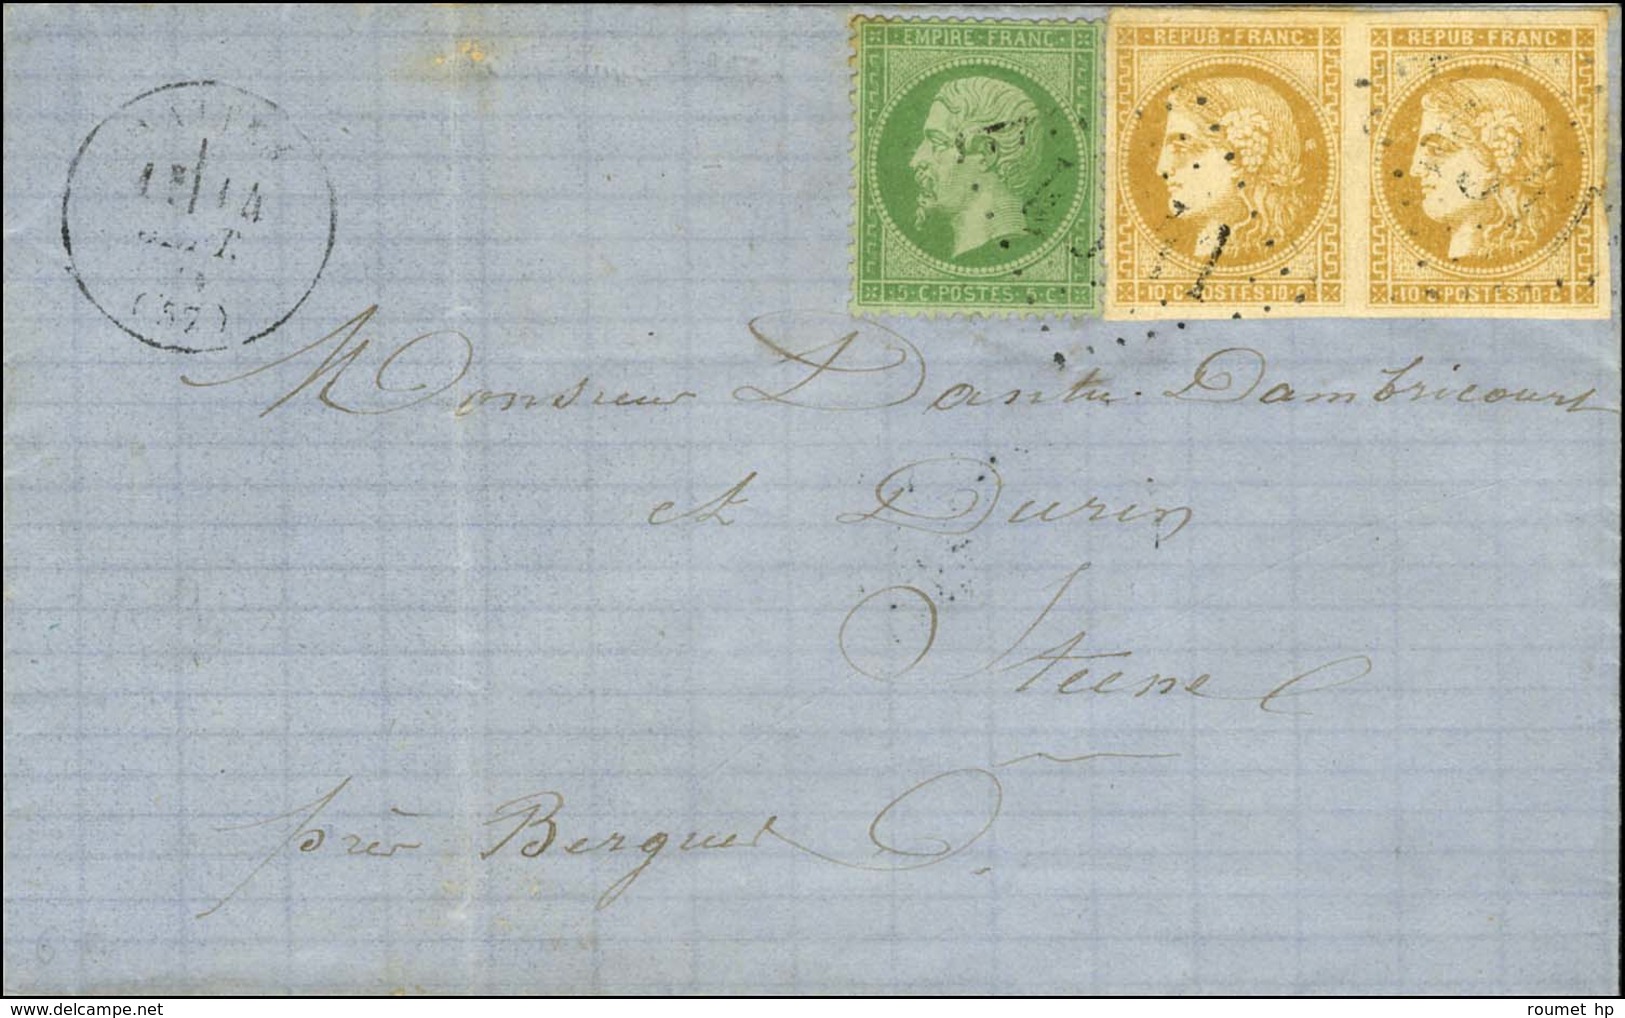 EMPIRE·FRANC·
REPUB·FRANC·
REPUB·FRANC·
14
SEPT.
(57)
5·C·POSTES·5·C·
10·C·POSTES·10·C
10·C·POSTES·10·C·
Monsieur Dantu-Dambricourt
et Durin
Steene
près Bergues
www.delcampe.net
roumet hp